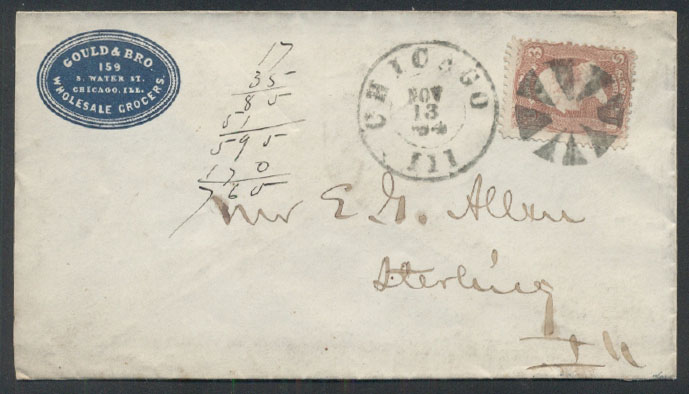 GOULD & BRO.
159
S. WATER ST.
CHICAGO, ILL.
WHOLESALE GROCERS.
17
35
85
51
595
170
765
CHICAGO
NOV
13
Ill
3
Mr E. G. Allen
Sterling
Ill